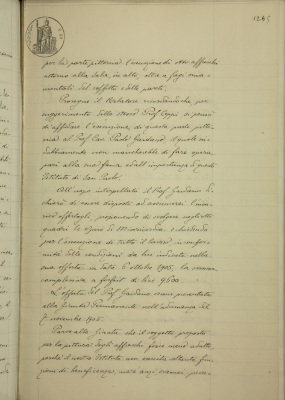 1245
per la parte pittorica l'esecuzione di otto affreschi
attorno alla sala, in alto, oltre a fregi orna-
mentali del soffitto e delle pareti.
Prosegue il Relatore ricordando che, per
suggerimento dello stesso Prof. Ceppi si pensò
di affidare l'esecuzione di questa parte pitto-
rica al Prof. Cav. Paolo Gaidano, il quale in-
dubbiamente non mancherebbe di fare opera
pari alla sua fama ed all'importanza di questo
Istituto di San Paolo.
All'uopo interpellato il Prof. Gaidano di-
chiarò di essere disposto ad assumersi l'inca-
rico offertogli, proponendo di svolgere negli otto
quadri le opere di Misericordia, e chiedendo
per l'esecuzione di tutto il lavoro in confor-
mità delle condizioni da lui indicate nella
sua offerta in data 6 ottobre 1905, la somma
complessiva a forfait di lire 9500.
L'offerta del Prof. Gaidano venne presentata
alla Giunta Permanente nell'adunanza del
7 novembre 1905.
Parve alla Giunta che il soggetto proposto
per la pittura degli affreschi fosse meno adatto,
perchè il nostro Istituto non esercita soltanto fun-
zioni di beneficenza, ma e anzi